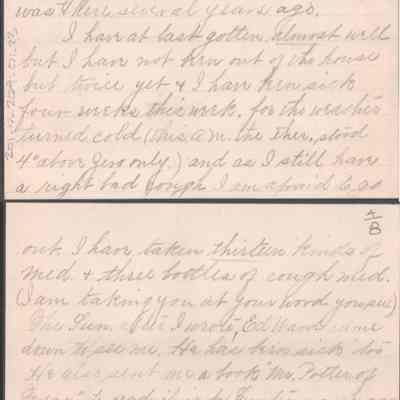 was there several years ago.
I have at last gotten almost well
but I have not been out of the house
but twice yet & I have been sick
four weeks this week. for the weather
turned cold (this a.m. the ther. stood
4° above zero only.) and as I still have
a right bad cough I am afraid to go
4/B
out. I have taken thirteen kinds of
med. & three bottles of cough med.
(I am taking you at your word you see)
The Sun. after I wrote, Ed came
down to see me. He has been sick too
He also sent me a book Mr. Potter of